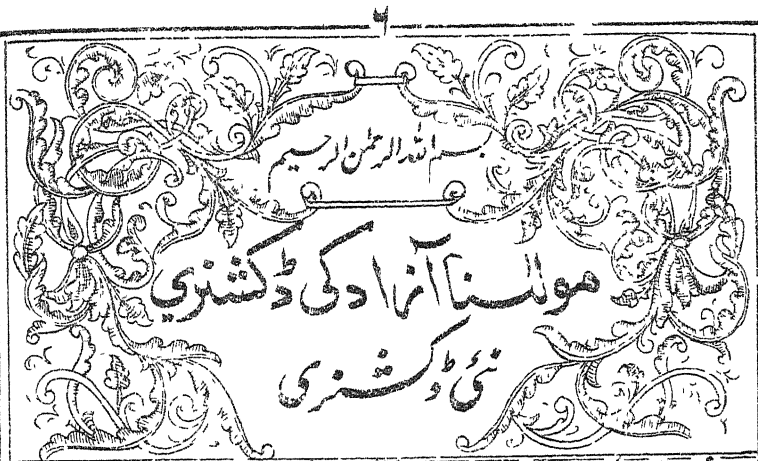 ۲
بسم اللہ الرحمٰن الرحیم
مولٰسنا آزاد کی ڈکشنری
نئی ڈکشنری